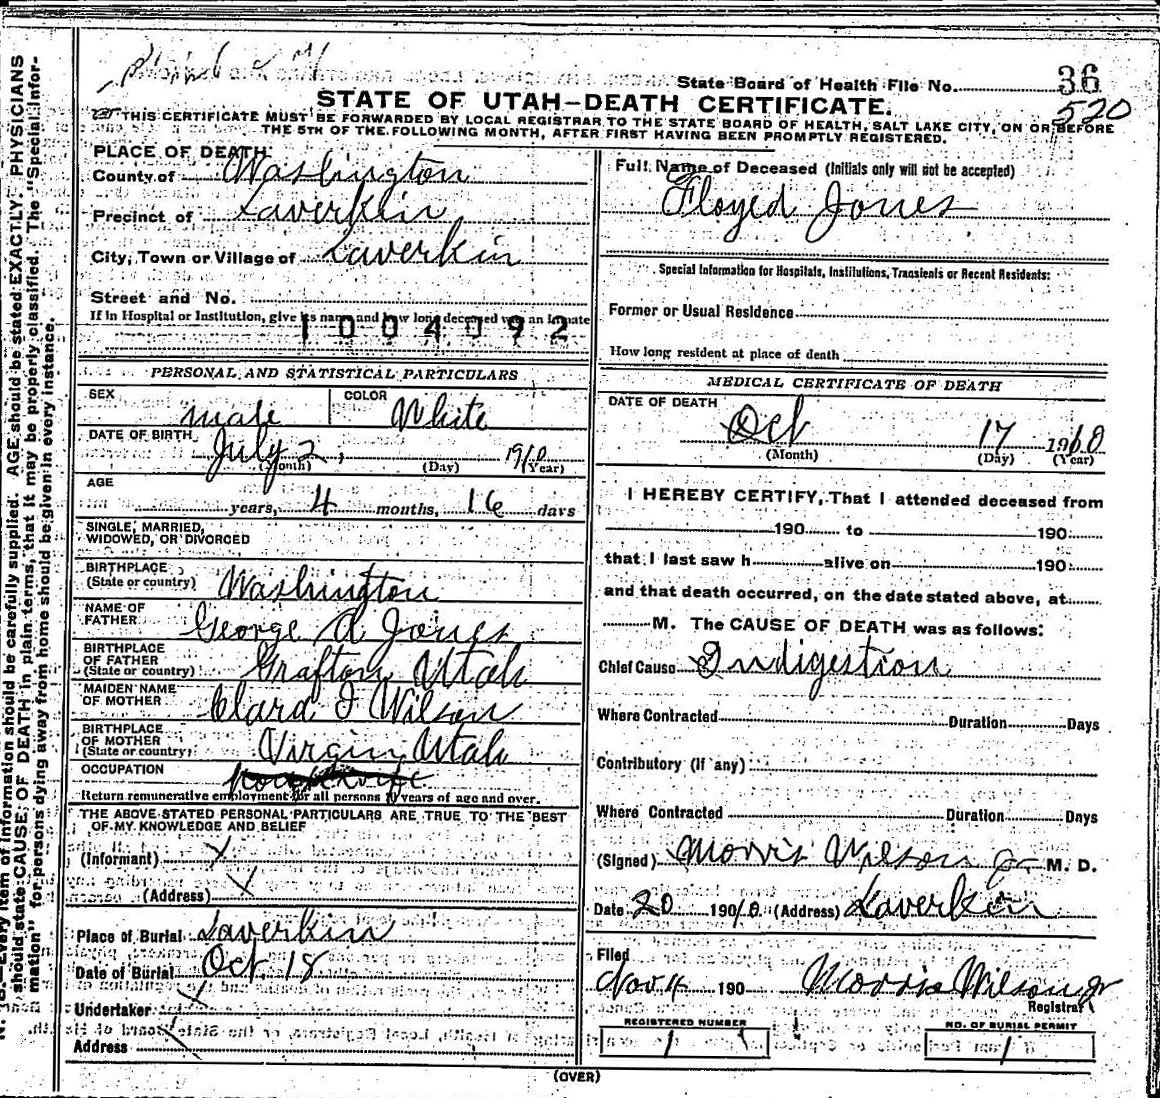 State Board of Health File No. 36
520
STATE OF UTAH—DEATH CERTIFICATE.
THIS CERTIFICATE MUST BE FORWARDED BY LOCAL REGISTRAR TO THE STATE BOARD OF HEALTH, SALT LAKE CITY, ON OR BEFORE
THE 5TH OF THE FOLLOWING MONTH, AFTER FIRST HAVING BEEN PROMPTLY REGISTERED.
PLACE OF DEATH
County of Washington
Precinct of Laverkin
City, Town or Village of Laverkin
Street and No.
If in Hospital or Institution, give its name and how long deceased was an inmate
1004092
PERSONAL AND STATISTICAL PARTICULARS
SEX male COLOR White
DATE OF BIRTH July 2, 1910
(Month) (Day) (Year)
AGE years, 4 months, 16 days
SINGLE, MARRIED,
WIDOWED, OR DIVORCED
BIRTHPLACE
(State or country) Washington
NAME OF
FATHER George A Jones
BIRTHPLACE
OF FATHER
(State or country) Grafton Utah
MAIDEN NAME
OF MOTHER Clara I Wilson
BIRTHPLACE
OF MOTHER
(State or country) Virgin Utah
OCCUPATION
Return remunerative employment for all persons 10 years of age and over.
THE ABOVE STATED PERSONAL PARTICULARS ARE TRUE TO THE BEST
OF MY KNOWLEDGE AND BELIEF
(Informant) X
(Address) X
Place of Burial Laverkin
Date of Burial Oct 18
Undertaker X
Address X
Full Name of Deceased (Initials only will not be accepted)
Floyed Jones
Special Information for Hospitals, Institutions, Transients or Recent Residents:
Former or Usual Residence
How long resident at place of death
MEDICAL CERTIFICATE OF DEATH
DATE OF DEATH
Oct 17 1910
(Month) (Day) (Year)
I HEREBY CERTIFY, That I attended deceased from
190 to 190
that I last saw h alive on 190
and that death occurred, on the date stated above, at
M. The CAUSE OF DEATH was as follows:
Chief Cause Indigestion
Where Contracted Duration Days
Contributory (if any)
Where Contracted Duration Days
(Signed) Morris Wilson Jr M. D.
Date 20 1910 (Address) Laverkin
Filed
Nov 4 190 Morris Wilson Jr
Registrar
REGISTERED NUMBER
1
NO. OF BURIAL PERMIT
1
(OVER)
N. B.—Every item of information should be carefully supplied. AGE should be stated EXACTLY. PHYSICIANS
should state CAUSE OF DEATH in plain terms, that it may be properly classified. The "Special Infor-
mation" for persons dying away from home should be given in every instance.